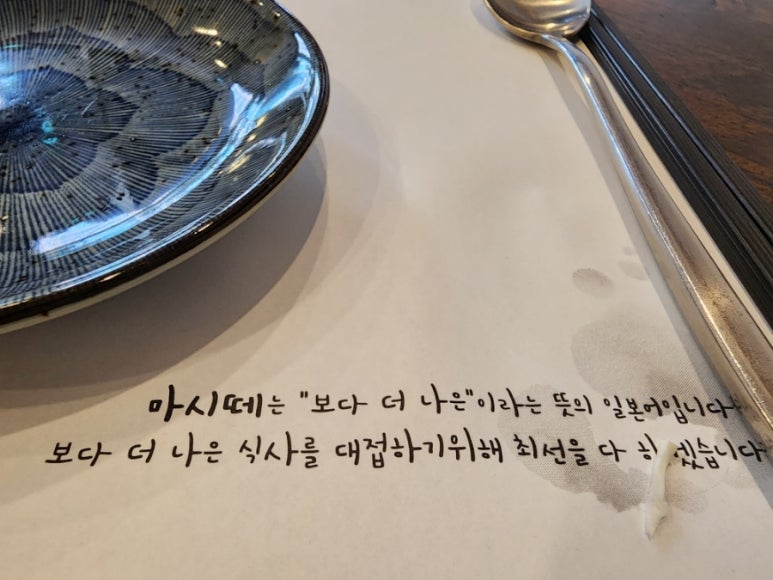 마시떼는 "보다 더 나은"이라는 뜻의 일본어입니다
보다 더 나은 식사를 대접하기위해 최선을 다 히 겠습니다